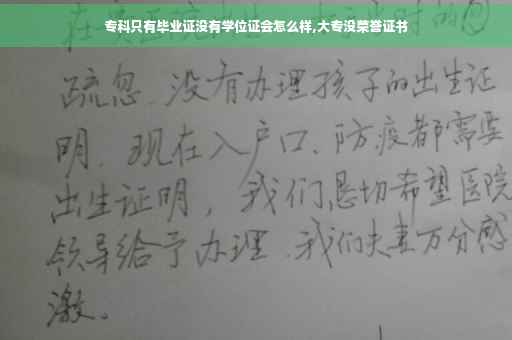 专科只有毕业证没有学位证会怎么样,大专没荣誉证书
疏忽.没有办理孩子的出生证
明.现在入户口、防疫都需要
出生证明，我们恳切希望医院
领导给予办理.我们夫妻万分感
激。